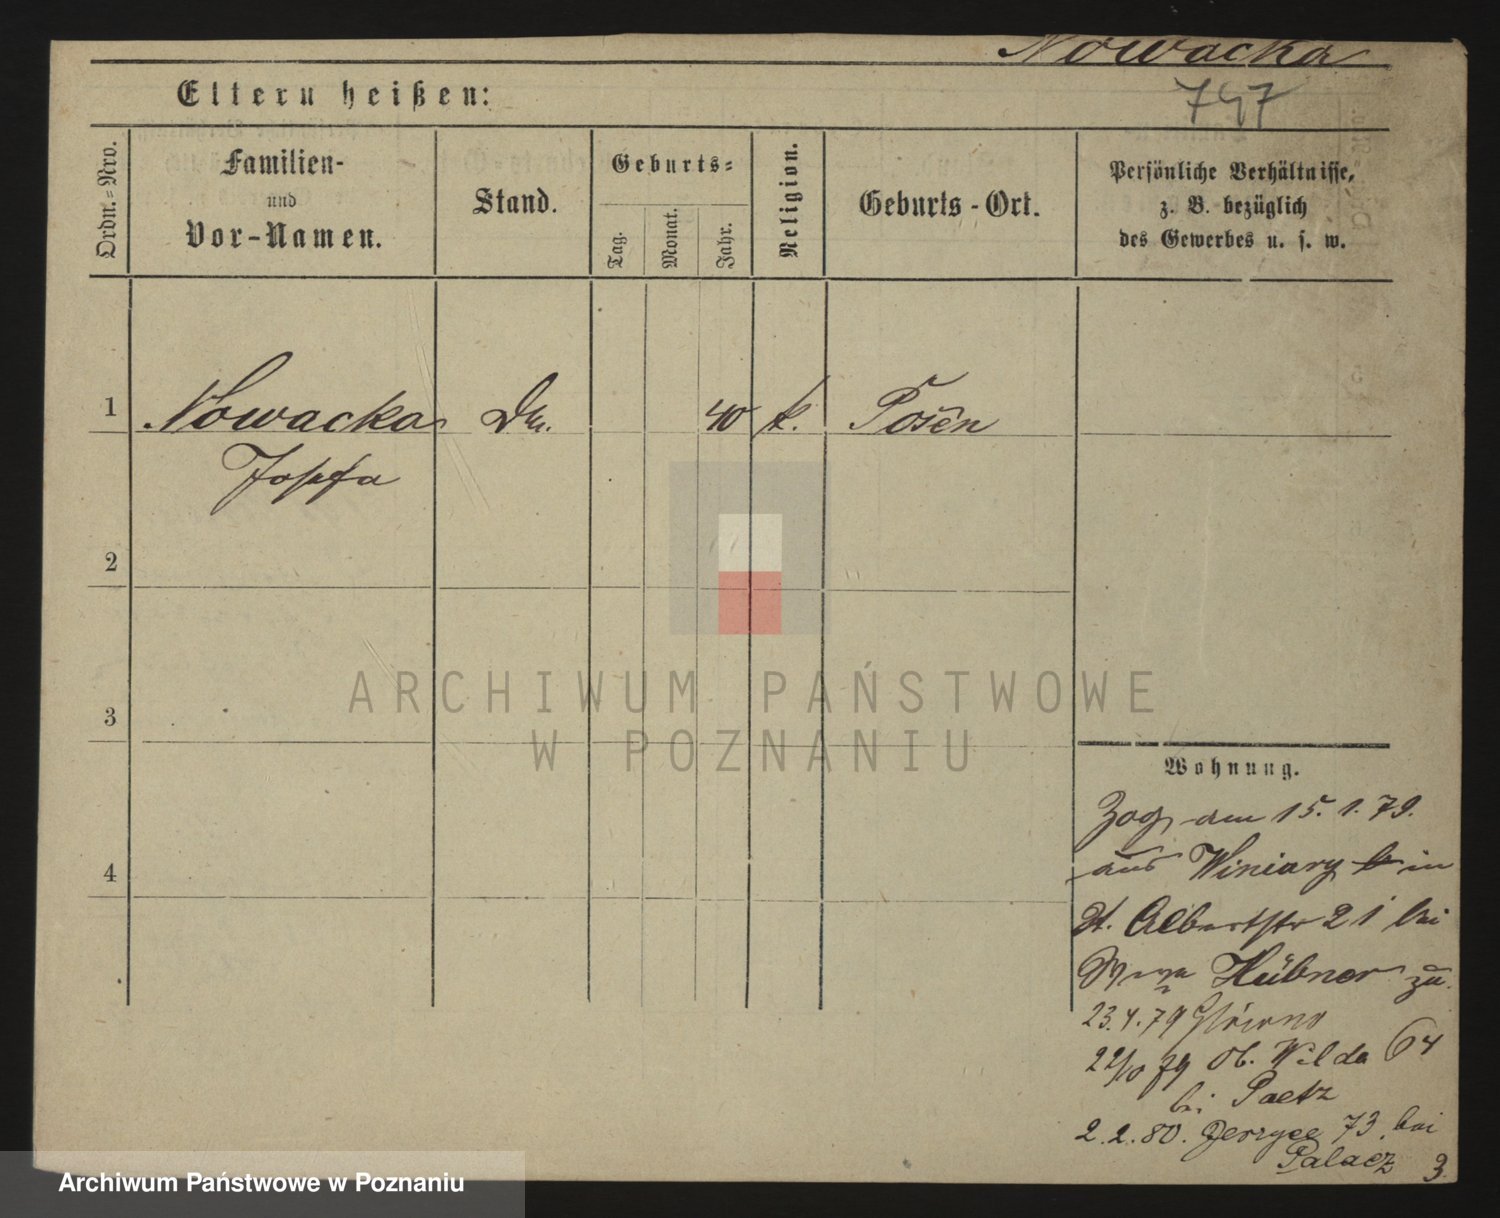 Nowacka
797
Eltern heißen:
Ordn.=Nro.
Familien-
und
Vor-Namen.
Stand.
Geburts=
Tag.
Monat.
Jahr.
Religion.
Geburts-Ort.
Persönliche Verhältnisse,
z. B. bezüglich
des Gewerbes u. s. w.
1 Nowacka 40 k. Posen
Josefa
2
3
4
ARCHIWUM PAŃSTWOWE
W POZNANIU
Wohnung.
Zog am 15.1.79.
aus Winiary in
St. Albertstr 21 bei
Hübner zu.
23.4.79 Główno
22/10 79 Ob. Wilda 64
bei Paetz
2.2.80. Jerzyce 73. bei
Palacz
3.
Archiwum Państwowe w Poznaniu